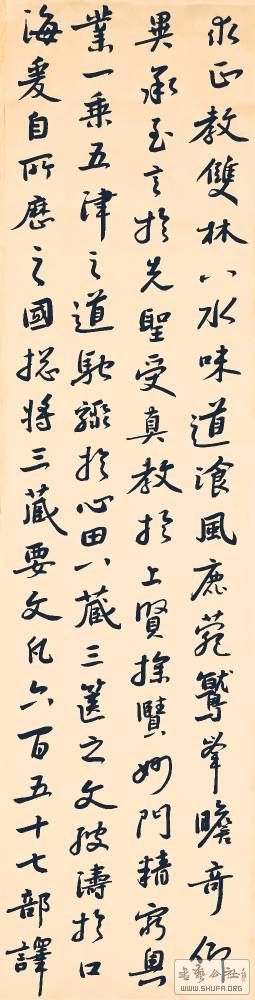 求正教雙林八水味道飡風鹿菀鷲峯瞻奇仰
異承至言於先聖受真教於上賢探賾妙門精窮奧
業一乘五津之道馳驟於心田八藏三篋之文波濤於口
海爰自所歷之國揔將三藏要文凡六百五十七部譯
WWW.SHUFA.ORG